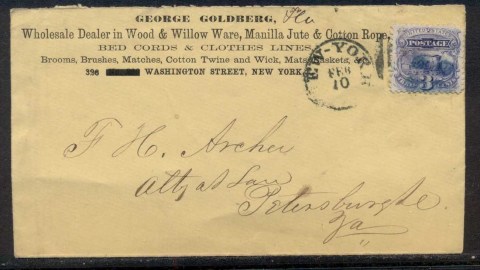 GEORGE GOLDBERG,
Wholesale Dealer in Wood & Willow Ware, Manilla Jute & Cotton Rope,
BED CORDS & CLOTHES LINES,
Brooms, Brushes, Matches, Cotton Twine and Wick, Mats, Baskets, &
396 WASHINGTON STREET, NEW YORK
NEW-YORK
FEB
10
POSTAGE
3
F. H. Archer
Atty at Law
Petersburgh
Va